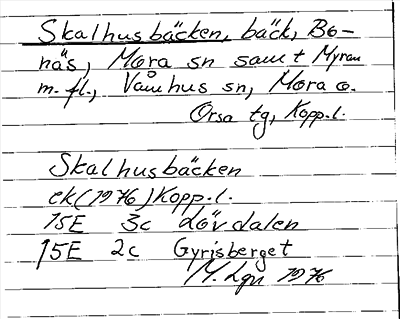 Skalhusbäcken, bäck, Bo-
näs, Mora sn samt Myran
m.fl., Våmhus sn, Mora o.
Orsa tg, Kopp.l.
Skalhusbäcken
ek(1976)Kopp.l.
15E 3c Lövdalen
15E 2c Gyrisberget
M. Lgn 1976